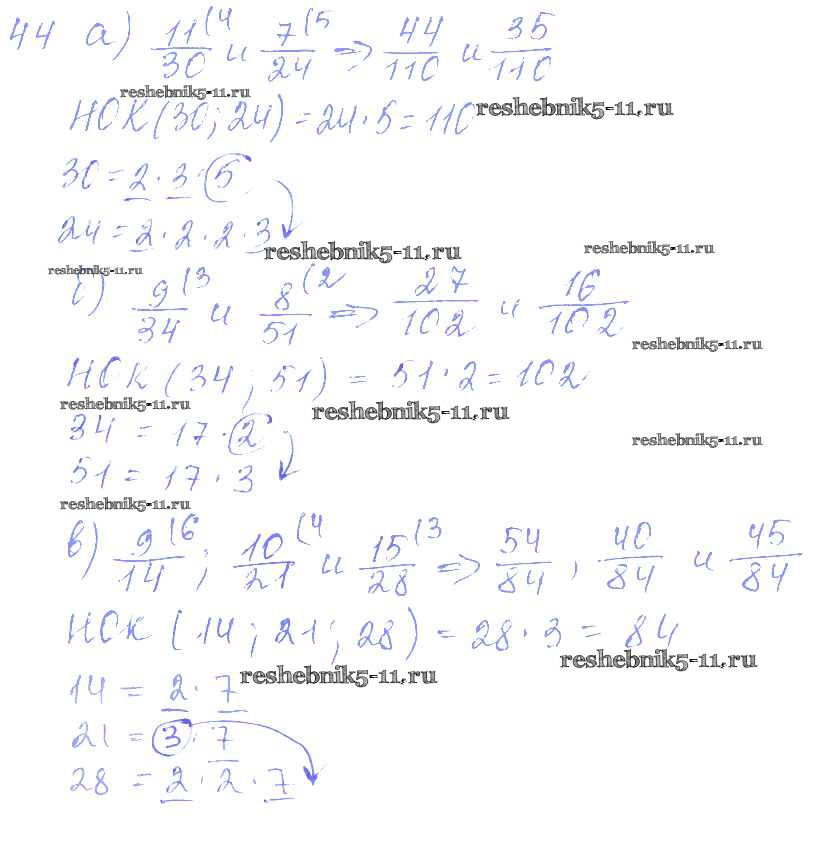 44 а) 11(4/30 и 7(5/24 => 44/110 и 35/110
reshebnik5-11.ru
НОК(30; 24) = 24·5 = 110
reshebnik5-11.ru
30 = 2·3·5
24 = 2·2·2·3
reshebnik5-11.ru
reshebnik5-11.ru
reshebnik5-11.ru
б) 9(3/34 и 8(2/51 => 27/102 и 16/102
reshebnik5-11.ru
НОК (34; 51) = 51·2 = 102
reshebnik5-11.ru
reshebnik5-11.ru
34 = 17·2
reshebnik5-11.ru
51 = 17·3
reshebnik5-11.ru
в) 9(6/14; 10(4/21 и 15(3/28 => 54/84, 40/84 и 45/84
НОК (14; 21; 28) = 28·3 = 84
reshebnik5-11.ru
reshebnik5-11.ru
14 = 2·7
21 = 3·7
28 = 2·2·7